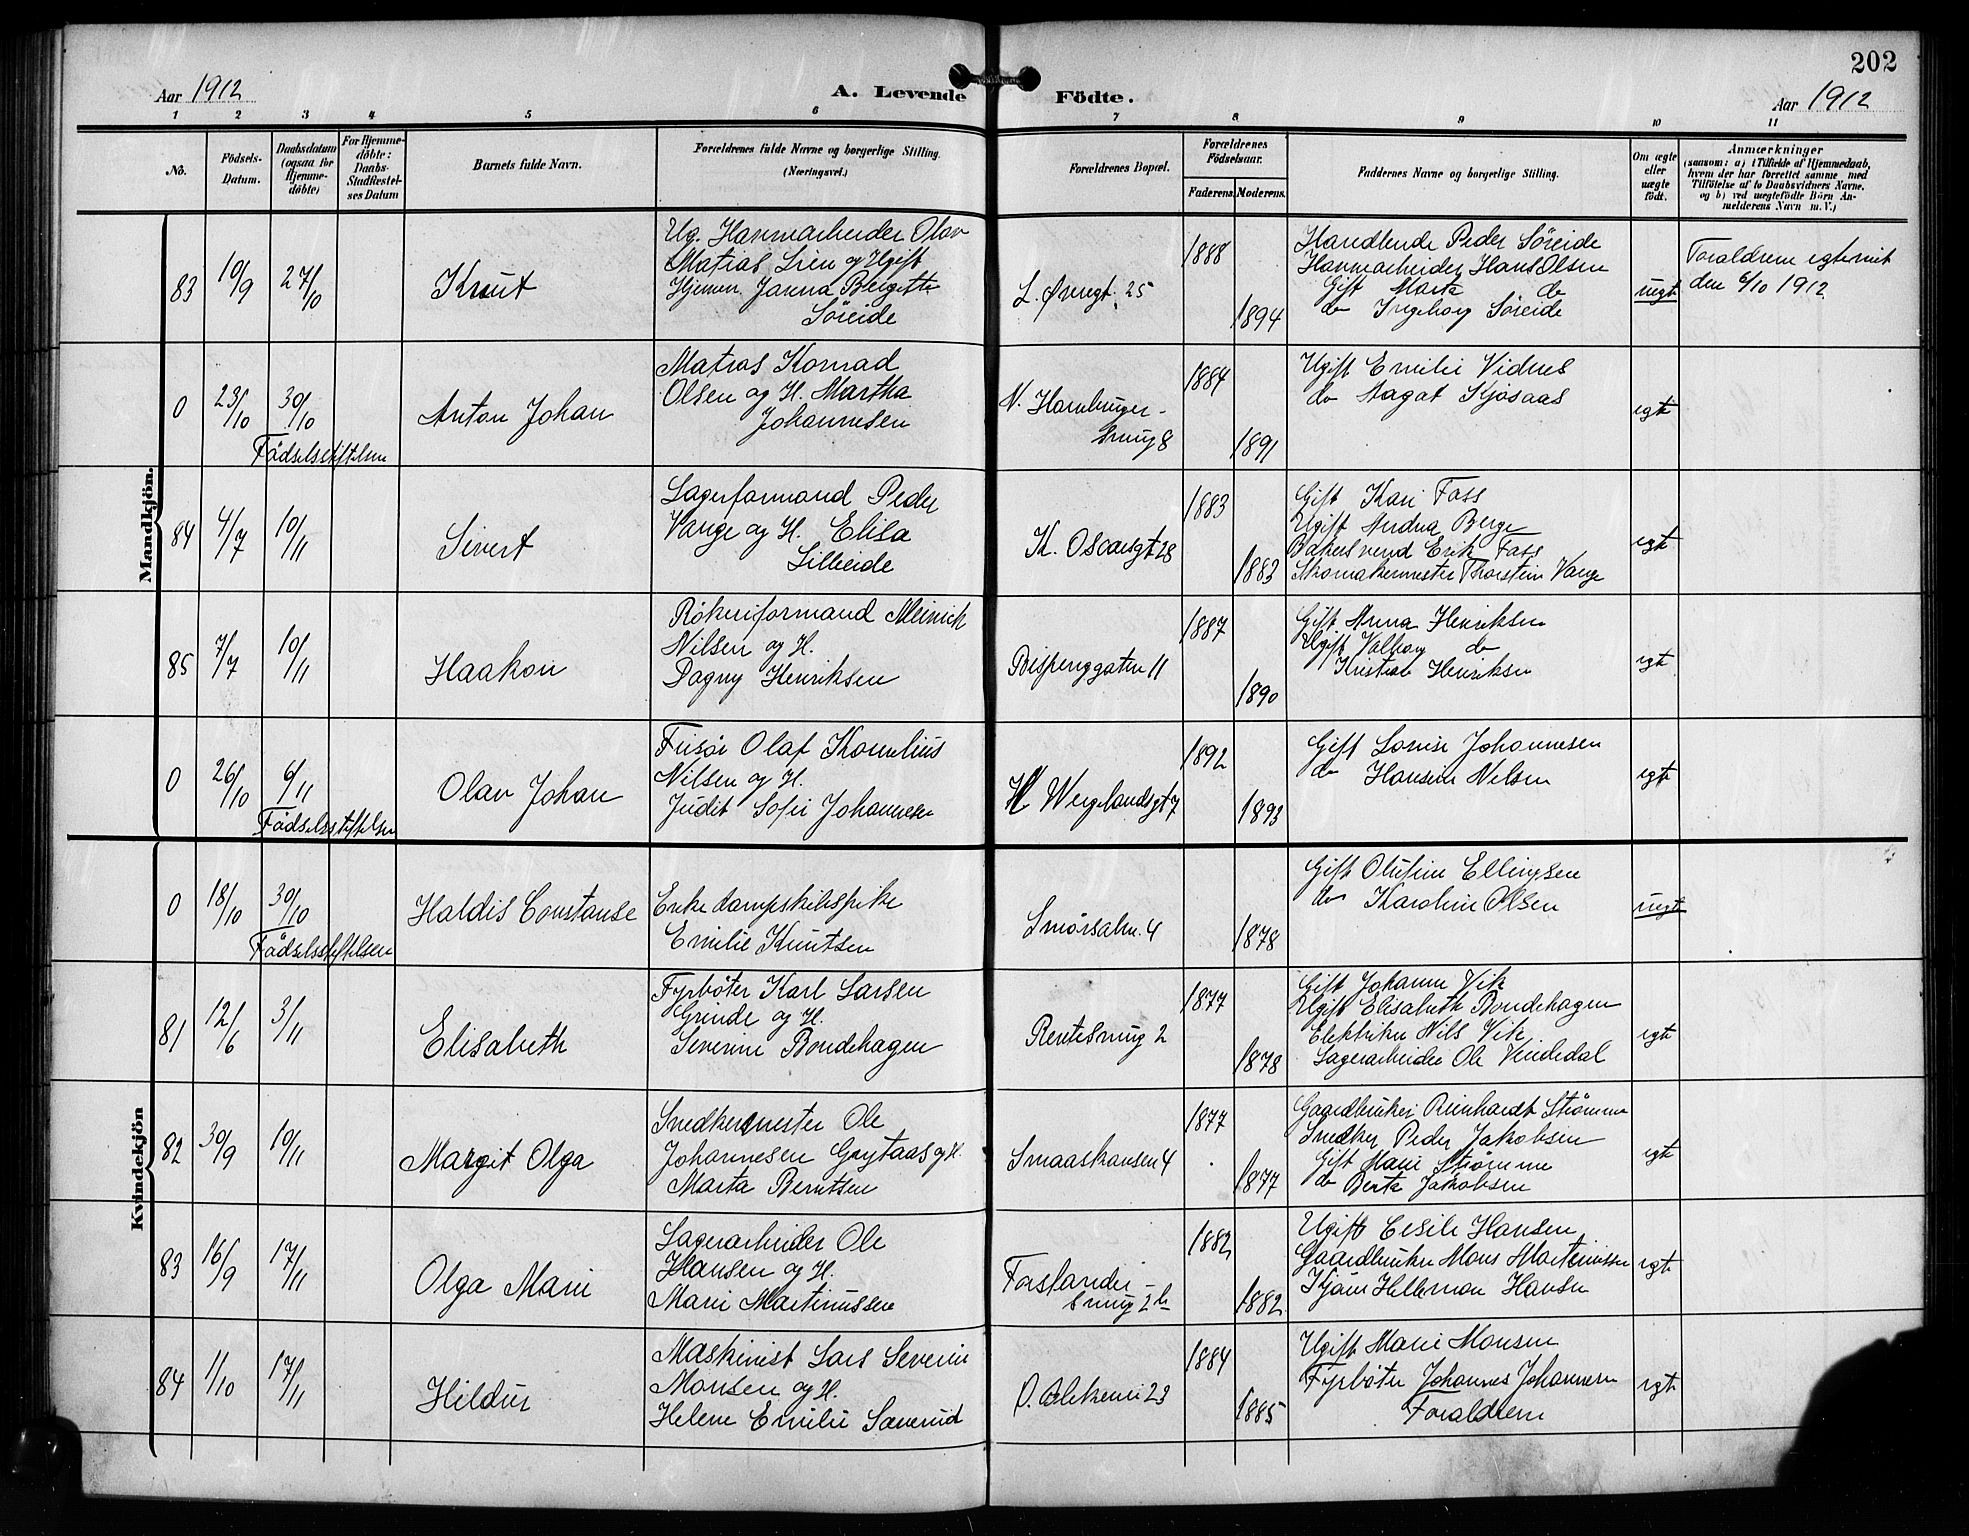 202
Aar 1912
A. Levende Födte.
Aar 1912
1 2 3 4 5 6 7 8 9 10 11
No.
Födsels-Datum.
Daabsdatum (ogsaa for Hjemme-döbte)
For Hjemme-döbte: Daabs-Stadfæstel-ses Datum
Barnets fulde Navn.
Forældrenes fulde Navne og borgerlige Stilling. (Næringsvei.)
Forældrenes Bopæl.
Forældrenes Födselsaar.
Faderens. Moderens.
Faddernes Navne og borgerlige Stilling.
Om ægte eller uægte födt.
Anmærkninger
(saasom: a) i Tilfælde af Hjemmedaab, hvem der har forrettet samme med Tilföielse af to Daabsvidners Navne, og b) ved uægtefödte Börn Anmelderens Navn m. V.)
Mandkjön.
83 10/9 27/10
Knut
Ug. Havnearbeider Olav
Matias Lien og Ugift
Hjemmv. Janna Bergitte
Søreide
L. Øvregt. 25
1888
1894
Handlende Peder Søreide
Havnearbeider Hans Olsen
Gift Marta do
do Ingeborg Søreide
uegt
Forældrene egteviet
den 6/10 1912
0 23/10 30/10
Födselsstiftelsen
Anton Johan
Matias Konrad
Olsen og H. Martha
Johannesen
N. Hamburger-
smug 8
1884
1891
Ugift Emilie Vidnes
do Aagot Kjøsaas
egte
84 4/7 10/11
Sivert
Lagerformand Peder
Vange og H. Elisa
Lilleeide
K. Oscarsgt 28
1883
1883
Gift Kari Fass
Ugift Andrea Berge
Bakersvend Erik Fass
Skomakermester Thorstein Vange
egte
85 7/7 10/11
Haakon
Rökeriformand Meinich
Nilsen og H.
Dagny Henriksen
Bispenggaten 11
1887
1890
Gift Anna Henriksen
Ugift Valborg do
Kristian Henriksen
egte
0 26/10 6/11
Födselsstiftelsen
Olav Johan
Frisör Olaf Kornelius
Nilsen og H.
Judit Sofie Johannesen
H Wergelandsgt 7
1892
1893
Gift Lovise Johannesen
do Hansine Nilsen
egte
Kvindekjön
0 18/10 30/10
Födselsstiftelsen
Haldis Constanse
Enke dampskibspike
Emilie Knutsen
Smørsalm. 4
1878
Gift Olufine Ellingsen
do Karoline Olsen
uegt
81 12/6 3/11
Elisabeth
Fyrbøter Karl Larsen
Grinde og H.
Severine Bondehagen
Rentesmug 2
1877
1878
Gift Johanne Vik
Ugift Elisabeth Bondehagen
Elektriker Nils Vik
Lagerarbeider Ole Vindedal
egte
82 30/9 10/11
Margit Olga
Snedkermester Ole
Johannesen Grytaas og H.
Marta Berntsen
Smaaskansen 4
1877
1877
Gaardbruker Reinhardt Strømme
Snedker Peder Jakobsen
Gift Marie Strømme
do Berta Jakobsen
egte
83 16/9 17/11
Olga Marie
Lagerarbeider Ole
Hansen og H.
Marie Martinussen
Forstander
smug 2 b
1882
1882
Ugift Cesilie Hansen
Gaardbruker Mons Martinussen
Hilleman Hansen
egte
84 1/10 17/11
Hildur
Maskinist Lars Severin
Monsen og H.
Helene Emilie Sæverud
Ø. Blekevei 23
1884
1885
Ugift Marie Monsen
Fyrbøter Johannes Johannesen
Forældrene
egte